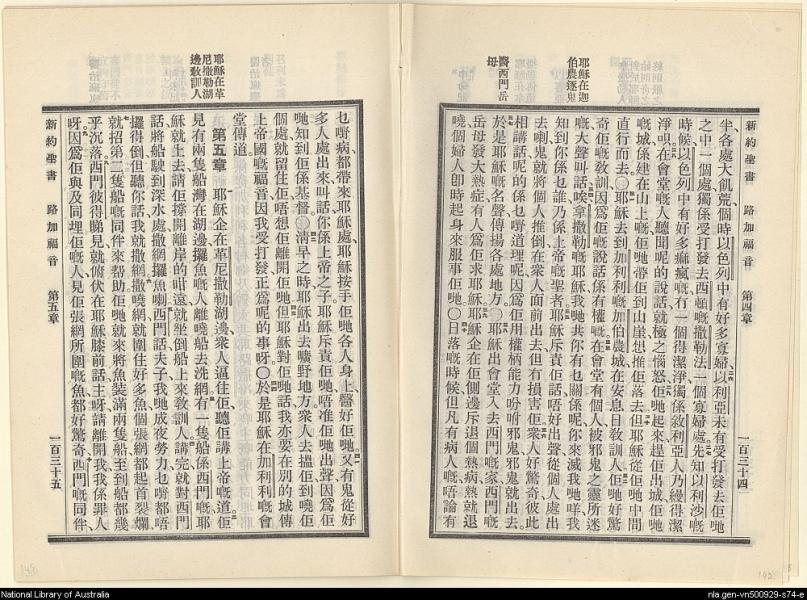 新約聖書 路加福音 第四章 一百三十四
耶穌在迦
伯農逐鬼
醫西門岳
母
年各處大飢荒個時以色列中有好多寡婦以利亞未有受打發去佢哋
之中一個處獨係受打發去西頓嘅撒勒法一個寡婦處先知以利沙嘅
時候以色列中有好多痲瘋嘅冇一個得潔淨獨係敘利亞人乃縵得潔
淨呮在會堂嘅人聽聞呢的說話就極之惱怒佢哋起來趕佢出城佢哋
嘅城係建在山上嘅佢哋帶佢到山崖想推佢落去但耶穌從佢哋中間
直行而去○耶穌去到加利利嘅加伯農城在安息日敎訓人佢哋好驚
奇佢嘅敎訓因爲佢嘅說話係有權嘅在會堂有個人被邪鬼之靈所迷
嘅大聲叫話唉拿撒勒嘅耶穌我哋共你有乜關係呢你來滅我哋咩我
知到你係乜誰乃係上帝嘅聖者耶穌斥責佢話唔好出聲從個人處出
去喇鬼就將個人推倒在衆人面前出去但冇損害佢衆人好驚奇彼此
相講話呢的係乜嘢道理呢因爲佢用權柄能力吩咐邪鬼邪鬼就出去
於是耶穌嘅名聲傳揚各處地方○耶穌出會堂入去西門嘅家西門嘅
岳母發大熱症有人爲佢求耶穌耶穌企在佢側邊斥退個熱病熱就退
曉個婦人卽時起身來服事佢哋○日落嘅時候但凡有病人嘅唔論有
耶穌在革
尼撒勒湖
邊敎訓人
乜嘢病都帶來耶穌處耶穌按手佢哋各人身上醫好佢哋又有鬼從好
多人處出來叫話你係上帝之子耶穌斥責佢哋唔准佢哋出聲因爲佢
哋知到佢係基督○淸早之時耶穌出去曠野地方衆人去搵佢到曉佢
個處就留住佢唔想佢離開佢哋但耶穌對佢哋話我亦要在別的城傳
上帝國嘅福音因我受打發正爲呢的事呀○於是耶穌在加利利嘅會
堂傳道
第五章 耶穌企在革尼撒勒湖邊衆人逼住佢聽佢講上帝嘅道佢
見有兩隻船灣在湖邊攞魚嘅人離曉船去洗網有一隻船係西門嘅耶
穌就上去請佢撐開離岸的咁遠就坐倒船上來敎訓人講完就對西門
話將船駛到深水處撒網攞魚喇西門話夫子我哋成夜勞力乜嘢都唔
攞得倒但聽你話我就撒網撒曉網就圍住好多魚個張網都起首裂爛
就招第二隻船嘅同伴來幫助佢哋就來將魚裝滿兩隻船至到船都幾
乎沉落西門彼得睇見就俯伏在耶穌膝前話主呀請離開我我係罪人
呀因爲佢與及同埋佢嘅人見佢張網所圍嘅魚都好驚奇西門嘅同伴
新約聖書 路加福音 第五章 一百三十五
National Library of Australia
nla.gen-vn500929-s74-e